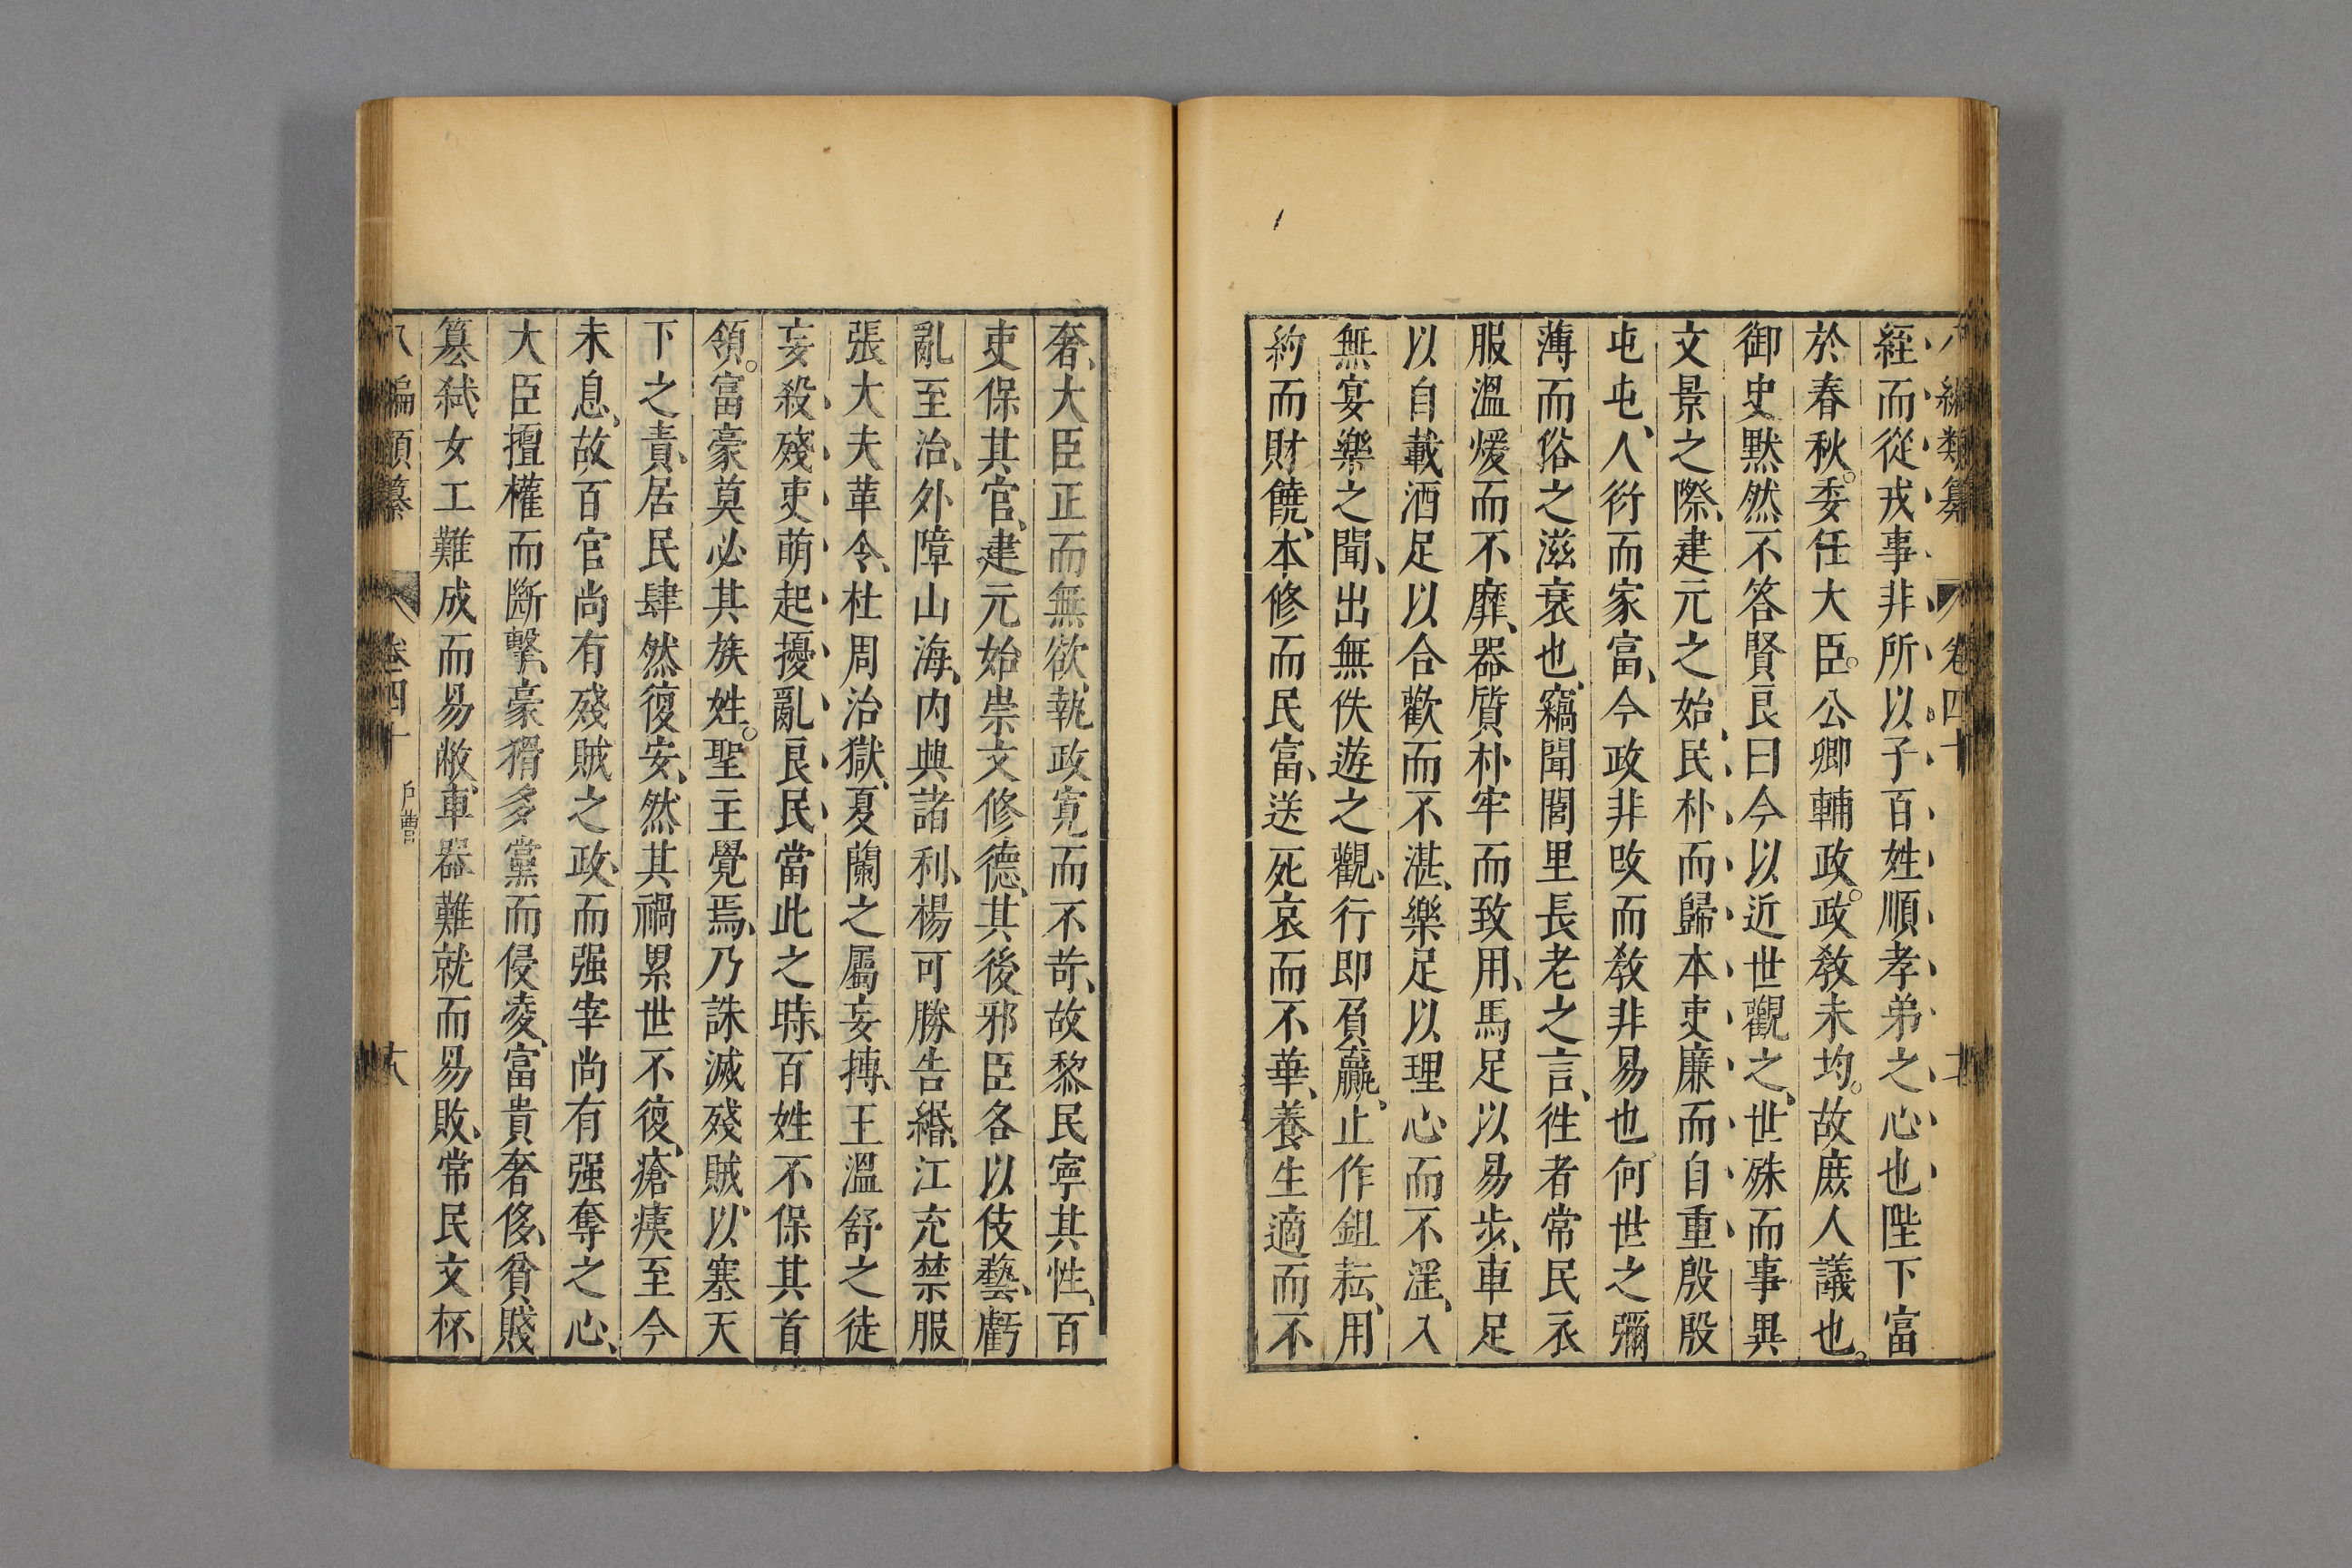 八編類纂 卷四十
絰而從戎事非所以子百姓順孝弟之心也陛下富
於春秋。委任大臣。公卿輔政。政教未均。故庶人議也。
御史默然不答賢良曰今以近世觀之、世殊而事異
文景之際、建元之始、民朴而歸本吏廉而自重殷殷
屯屯、人衍而家富、今政非改而教非易也何世之彌
薄而俗之滋衰也、竊聞閭里長老之言、徃者常民衣
服溫煖而不靡、器質朴牢而致用、馬足以易步、車足
以自載酒足以合歡而不湛、樂足以理心而不淫、入
無宴樂之聞、出無佚遊之觀、行即負贏、止作鉏耘、用
約而財饒、本修而民富、送死哀而不華、養生適而不
奢、大臣正而無欲、執政寬而不苛、故黎民寧其性、百
吏保其官、建元始崇文修德、其後邪臣各以伎藝、虧
亂至治、外障山海、內興諸利、楊可勝告緡、江充禁服
張大夫革令、杜周治獄、夏蘭之屬妄摶、王溫舒之徒
妄殺、殘吏萌起、擾亂良民、當此之時、百姓不保其首
領。富豪莫必其族姓。聖主覺焉、乃誅滅殘賊、以塞天
下之責、居民肆然復安、然其禍累世不復、瘡痍至今
未息、故百官尚有殘賊之政、而强宰尚有强奪之心、
大臣擅權而斷擊、豪猾多黨而侵凌、富貴奢侈、貧賤
篡弒女工難成而易敝、車器難就而易敗、常民文杯
八編類纂 卷四十 戶曹 十八